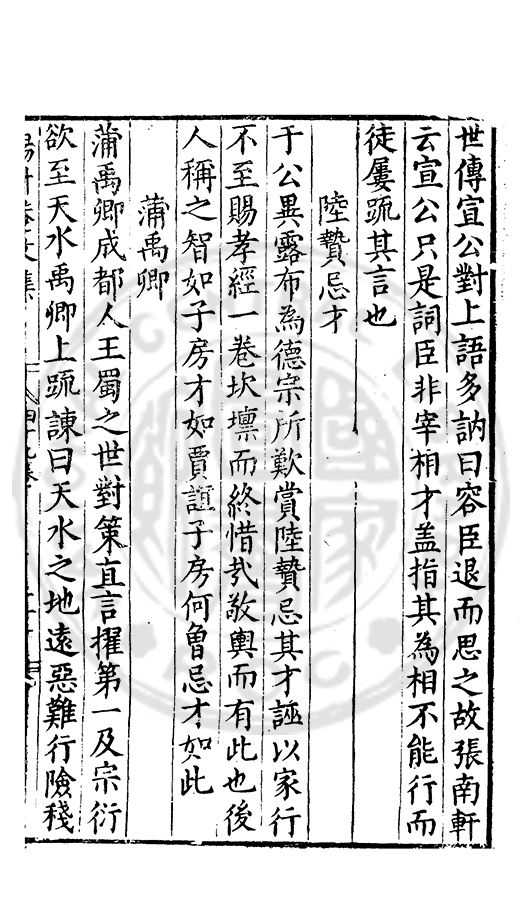 世傳宣公對上語多訥曰容臣退而思之故張南軒
云宣公只是詞臣非宰相才盖指其為相不能行而
徒屢䟽其言也
陸贄忌才
于公異露布為德宗所歎賞陸贄忌其才誣以家行
不至賜孝經一卷坎壈而終惜㢤敬輿而有此也後
人稱之智如子房才如賈誼子房何曾忌才如此
蒲禹卿
蒲禹卿成都人王蜀之世對策直言擢第一及宗衍
欲至天水禹卿上䟽諫曰天水之地遠惡難行險棧